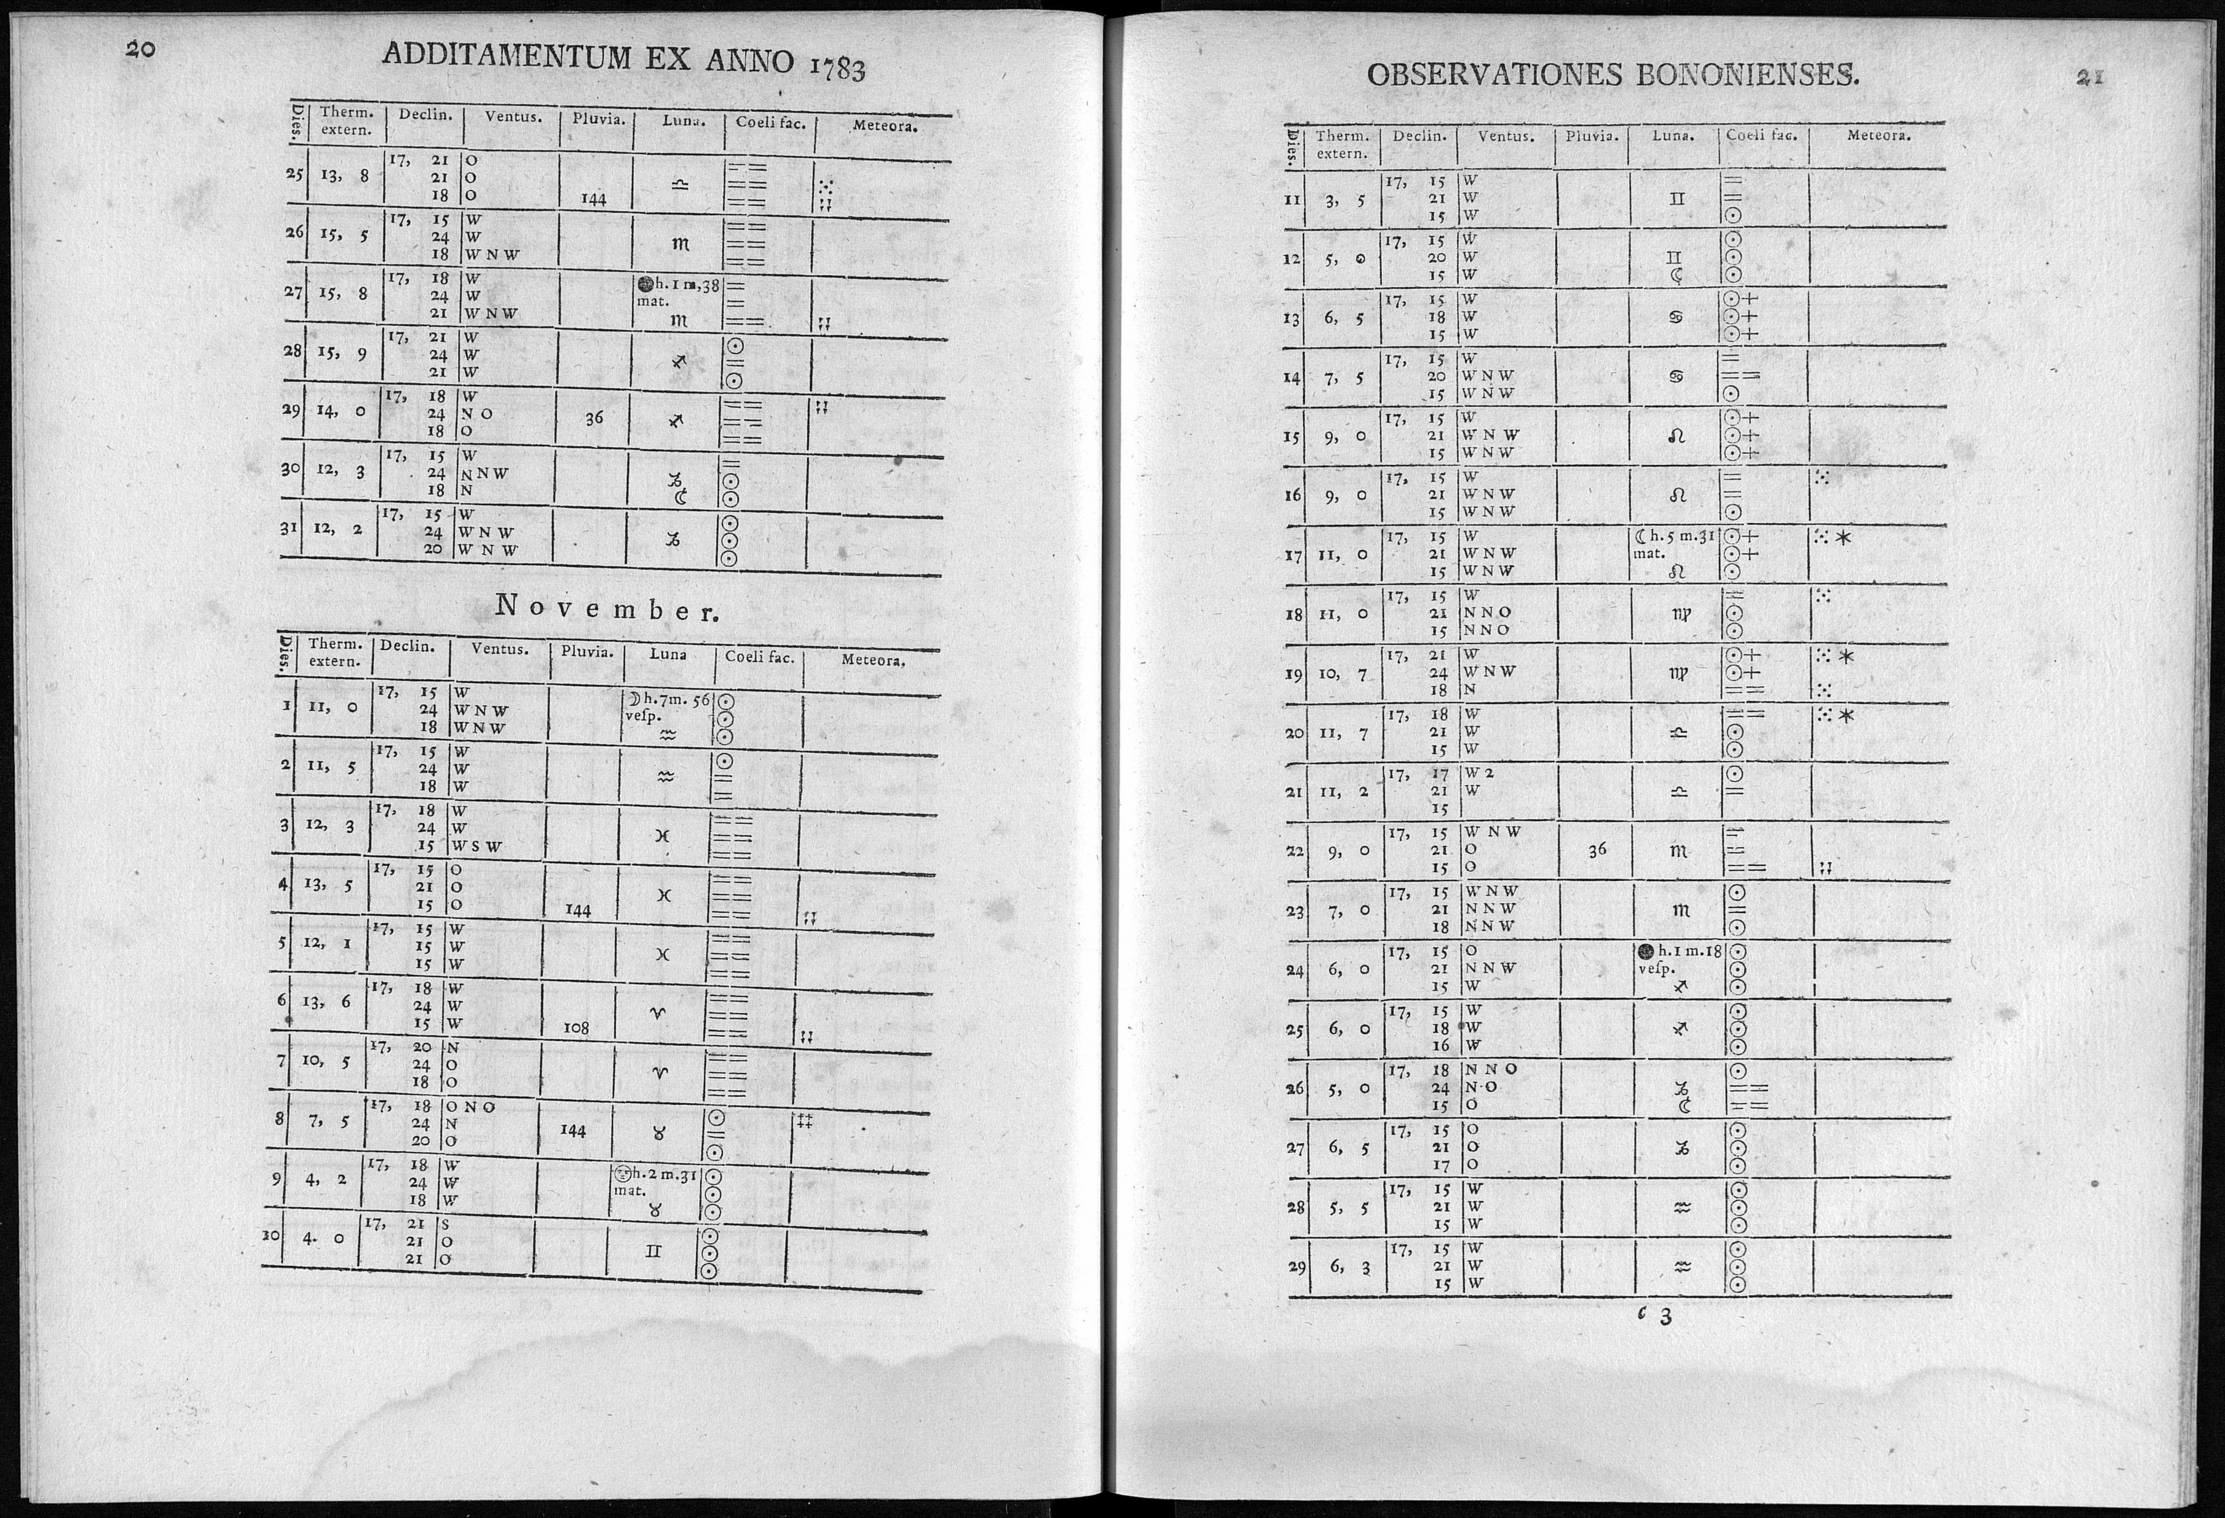 20
ADDITAMENTUM EX ANNO 1783
Dies. Therm. extern. Declin. Ventus. Pluvia. Luna. Coeli fac. Meteora.
17, 21 O == 
25 13, 8 21 O ♎ == ⁙
18 O 144 ==
17, 15 W ==
26 15, 5 24 W ♏ ==
18 W N W ==
17, 18 W h. 1 m, 38 =
27 15, 8 24 W mat. =
21 W N W ♏ ==
17, 21 W ☉
28 15, 9 24 W ♐ =
21 W ☉
17, 18 W ==
29 14, 0 24 N O 36 ♐ ==
18 O ==
17, 15 W =
30 12, 3 24 N N W ♑ ☉
18 N ☾ ☉
17, 15 W ☉
31 12, 2 24 W N W ♑ ☉
20 W N W ☉
November.
Dies. Therm. extern. Declin. Ventus. Pluvia. Luna Coeli fac. Meteora.
17, 15 W ☽ h. 7 m. 56 ☉
1 11, 0 24 W N W veſp. ☉
18 W N W ♒ ☉
17, 15 W ☉
2 11, 5 24 W ♒ =
18 W =
17, 18 W ==
3 12, 3 24 W ♓ ==
15 W S W ==
17, 15 O ==
4 13, 5 21 O ♓ ==
15 O 144 ==
17, 15 W ==
5 12, 1 15 W ♓ ==
15 W ==
17, 18 W ==
6 13, 6 24 W ♈ ==
15 W 108 ==
17, 20 N ==
7 10, 5 24 O ♈ ==
18 O ==
17, 18 O N O ☉ ‡‡
8 7, 5 24 N 144 ♉ =
20 O ☉
17, 18 W h. 2 m. 31 ☉
9 4, 2 24 W mat. ☉
18 W ♉ ☉
17, 21 S ☉
10 4. 0 21 O ♊ ☉
21 O ☉
OBSERVATIONES BONONIENSES.
21
Dies. Therm. extern. Declin. Ventus. Pluvia. Luna. Coeli fac. Meteora.
17, 15 W =
11 3, 5 21 W ♊ =
15 W ☉
17, 15 W ☉
12 5, 0 20 W ♊ ☉
15 W ☾ ☉
17, 15 W ☉+
13 6, 5 18 W ♋ ☉+
15 W ☉+
17, 15 W =
14 7, 5 20 W N W ♋ ==
15 W N W ☉
17, 15 W ☉+
15 9, 0 21 W N W ♌ ☉+
15 W N W ☉+
17, 15 W = ⁙
16 9, 0 21 W N W ♌ =
15 W N W ☉
17, 15 W ☾ h. 5 m. 31 ☉+ ⁙ *
17 11, 0 21 W N W mat. ☉+
15 W N W ♌ ☉
17, 15 W = ⁙
18 11, 0 21 N N O ♍ ☉
15 N N O ☉
17, 21 W ☉+ ⁙ *
19 10, 7 24 W N W ♍ ☉+
18 N == ⁙
17, 18 W == ⁙ *
20 11, 7 21 W ♎ ☉
15 W ☉
17, 17 W 2 ☉
21 11, 2 21 W ♎ =
15
17, 15 W N W =
22 9, 0 21 O 36 ♏ =
15 O ==
17, 15 W N W ☉
23 7, 0 21 N N W ♏ =
18 N N W ☉
17, 15 O h. 1 m. 18 ☉
24 6, 0 21 N N W veſp. ☉
15 W ♐ ☉
17, 15 W ☉
25 6, 0 18 W ♐ ☉
16 W ☉
17, 18 N N O ☉
26 5, 0 24 N O ♑ ==
15 O ☾ ==
17, 15 O ☉
27 6, 5 21 O ♑ ☉
17 O ☉
17, 15 W ☉
28 5, 5 21 W ♒ ☉
15 W ☉
17, 15 W ☉
29 6, 3 21 W ♒ ☉
15 W ☉
c 3